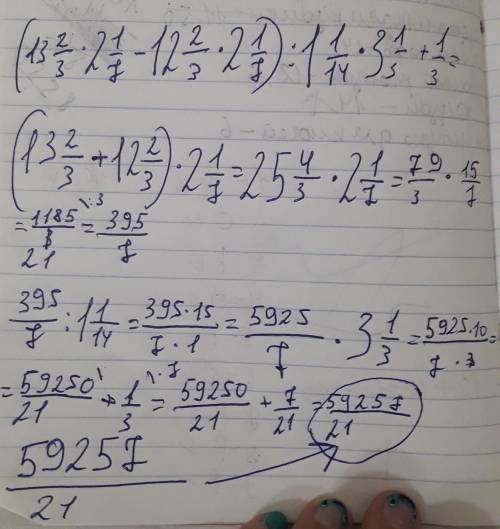 (13 2/3 · 2 1/7 - 12 2/3 · 2 1/7) : 1 1/14 · 3 1/3 + 1/3 =
(13 2/3 + 12 2/3) · 2 1/7 = 25 4/3 · 2 1/7 = 79/3 · 15/7
= 1185/21 \·3 = 395/7
395/7 : 1 1/14 = 395·15/7·1 = 5925/7 · 3 1/3 = 5925·10/7·3 =
= 59250/21 + 1/3 \·7 = 59250/21 + 7/21 = 59257/21
59257/21